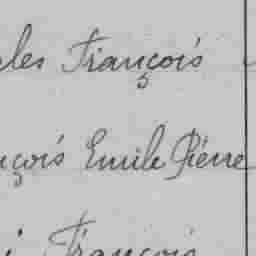 les François
çois Emile Pierre
François